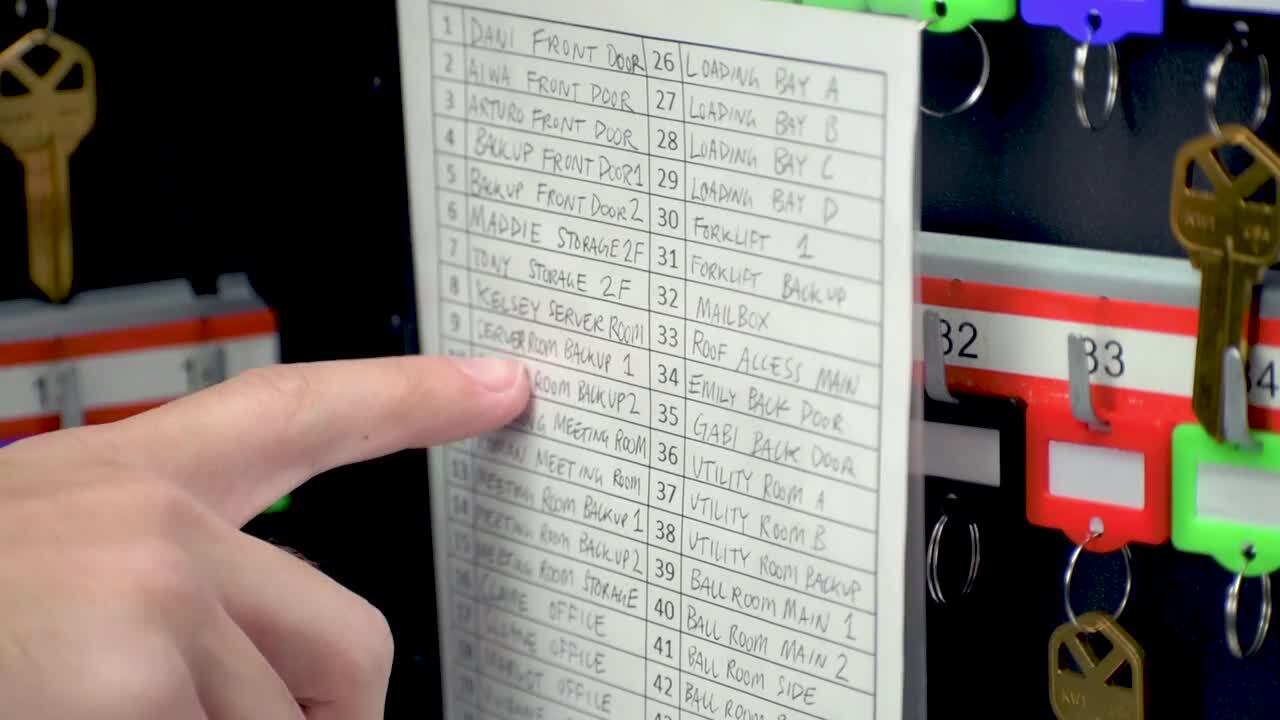 1 DANI FRONT DOOR 26 LOADING BAY A
2 AIWA FRONT DOOR 27 LOADING BAY B
3 ARTURO FRONT DOOR 28 LOADING BAY C
4 BACKUP FRONT DOOR 1 29 LOADING BAY D
5 BACKUP FRONT DOOR 2 30 FORKLIFT 1
6 MADDIE STORAGE 2F 31 FORKLIFT BACKUP
7 TONY STORAGE 2F 32 MAILBOX
8 KELSEY SERVER ROOM 33 ROOF ACCESS MAIN
9 SERVER ROOM BACKUP 1 34 EMILY BACK DOOR
ROOM BACKUP 2 35 GABI BACK DOOR
MEETING ROOM 36 UTILITY ROOM A
MEETING ROOM 37 UTILITY ROOM B
13 MEETING ROOM BACKUP 1 38 UTILITY ROOM BACKUP
14 MEETING ROOM BACKUP 2 39 BALL ROOM MAIN 1
15 MEETING ROOM STORAGE 40 BALL ROOM MAIN 2
16 OFFICE 41 BALL ROOM SIDE
17 OFFICE 42 BALL ROOM
OFFICE
32 33 34